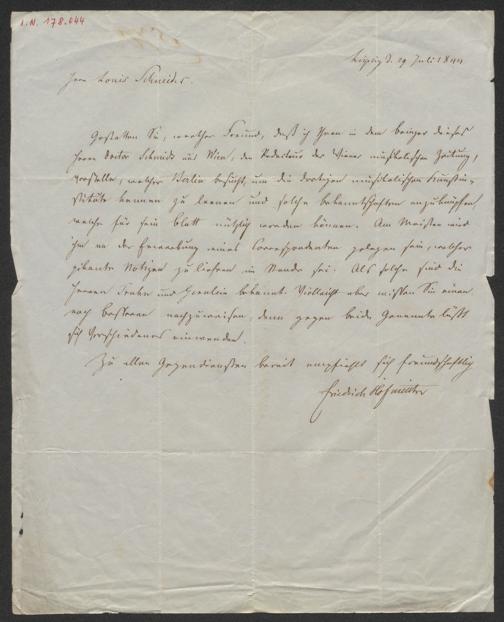 I.N. 178.044
Leipzig d. 29 Juli 1844
Herrn Louis Schneider.
Gestatten Sie, werther Freund, daß ich Ihnen in dem bringer dieses
Herrn Doctor Schmidt aus Wien, den Redacteur der Wiener musikalischen Zeitung,
vorstelle, welcher Berlin besucht, um die dortigen musikalischen Kunstin-
stitute kennen zu lernen und solche bekanntschaften anzuknüpfen
welche für sein blatt nützlich werden können. Am Meisten wird
ihm an der Erwerbung eines Correspondenten gelegen sein, welcher
pikante Notizen zu liefern im Stande sei. Als solche sind die
Herren und bekannt. Vielleicht aber wissen Sie einen
noch besseren nachzuweisen, denn gegen beide Genannte läßt
sich Verschiedenes einwenden.
Zu allen Gegendiensten bereit empfiehlt sich freundschaftlich
Friedrich Hofmeister